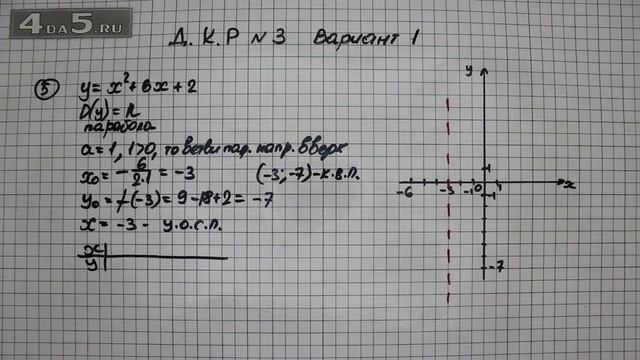 4DA5.RU
Д. К. Р №3 Вариант 1
⑤ y = x² + 6x + 2
D(y) = R
парабола
a = 1, 1>0, то ветви пар. напр. вверх
x₀ = -6/2·1 = -3 (-3; -7) - к.в.п.
y₀ = f(-3) = 9 - 18 + 2 = -7
x = -3 - у.о.с.п.
x
y
y
1
-6 -3 -1 0 1 x
-1
-7